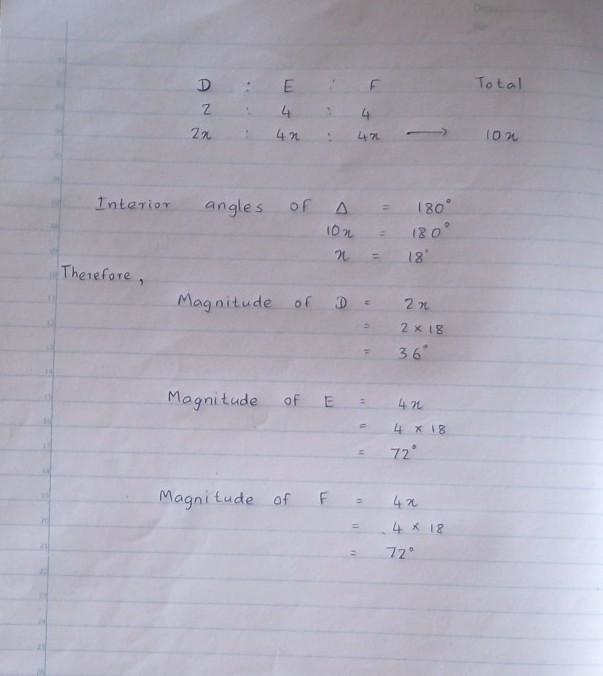 D : E : F Total
2 : 4 : 4
2x : 4x : 4x → 10x
Interior angles of Δ = 180°
10x = 180°
x = 18°
Therefore,
Magnitude of D = 2x
= 2 × 18
= 36°
Magnitude of E = 4x
= 4 × 18
= 72°
Magnitude of F = 4x
= 4 × 18
= 72°